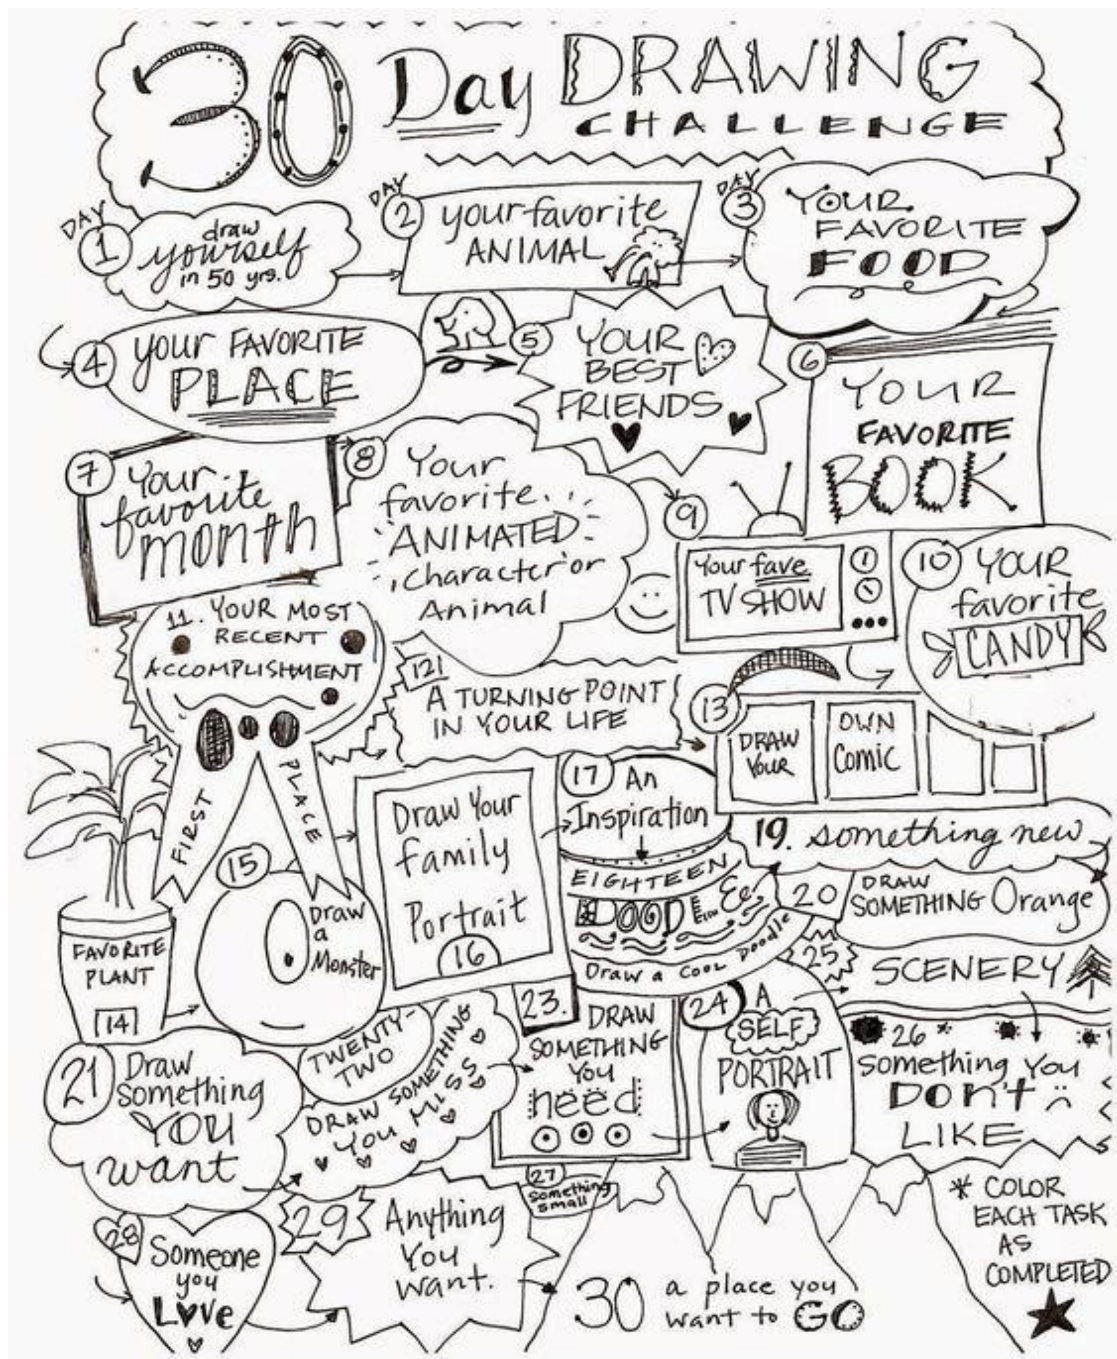 30 Day DRAWING
CHALLENGE
DAY
1
draw
yourself
in 50 yrs.
DAY
2
your favorite
ANIMAL
DAY
3
YOUR
FAVORITE
FOOD
4
your FAVORITE
PLACE
5
YOUR
BEST
FRIENDS
6
YOUR
FAVORITE
BOOK
7
Your
favorite
month
8
Your
favorite
ANIMATED
Character or
Animal
9
Your fave
TV SHOW
10
YOUR
favorite
CANDY
11. YOUR MOST
RECENT
ACCOMPLISHMENT
FIRST
PLACE
12
A TURNING POINT
IN YOUR LIFE
13
DRAW
YOUR
OWN
Comic
FAVORITE
PLANT
14
15
Draw
a
Monster
Draw Your
family
Portrait
16
17
An
Inspiration
EIGHTEEN
FOOD
Draw a cool Doodle
19. something new
20
DRAW
SOMETHING Orange
21
Draw
something
YOU
want
TWENTY-
TWO
DRAW SOMETHING
YOU MISS
23.
DRAW
SOMETHING
YOU
need
24
A
SELF
PORTRAIT
25
SCENERY
26
something You
DON'T
LIKE
27
something
small
28
Someone
you
Love
29
Anything
You
Want.
30 a place you
want to GO
* COLOR
EACH TASK
AS
COMPLETED